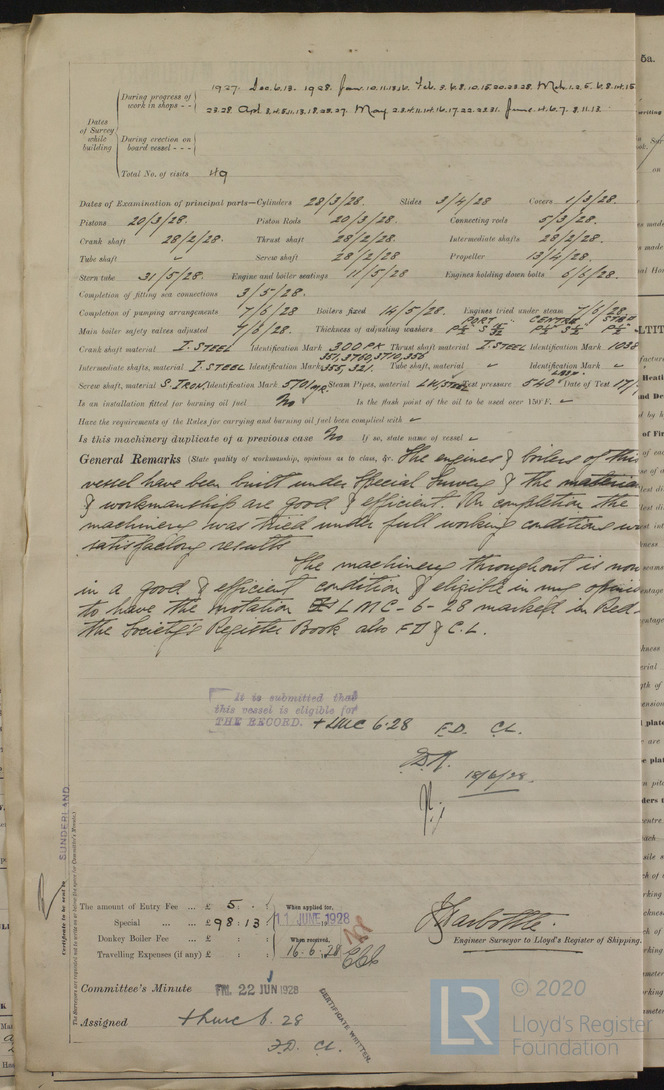 During progress of work in shops - - 1927. Dec. 6. 13. 1928. Jan. 10. 11. 13. 16. Feb. 3. 6. 8. 10. 15. 20. 23. 28. Mch. 1. 2. 5. 6. 8. 14. 15
23. 28. Apl. 2. 4. 5. 11. 13. 18. 25. 27. May 2. 3. 4. 11. 14. 16. 17. 22. 23. 31. June. 4. 6. 7. 8. 11. 13.
Dates of Survey while building
During erection on board vessel - - -
Total No. of visits 49
Dates of Examination of principal parts—Cylinders 28/3/28. Slides 3/4/28 Covers 1/3/28.
Pistons 20/3/28. Piston Rods 20/3/28. Connecting rods 5/3/28.
Crank shaft 28/2/28. Thrust shaft 28/2/28. Intermediate shafts 28/2/28.
Tube shaft " Screw shaft 28/2/28 Propeller 13/4/28.
Stern tube 31/5/28. Engine and boiler seatings 11/5/28 Engines holding down bolts 6/6/28.
Completion of fitting sea connections 3/5/28.
Completion of pumping arrangements 7/6/28 Boilers fixed 14/5/28. Engines tried under steam 7/6/28
Main boiler safety valves adjusted 7/6/28. Thickness of adjusting washers PORT CENTRE STBD
Crank shaft material I. STEEL Identification Mark 300PK Thrust shaft material I. STEEL Identification Mark 1038
Intermediate shafts, material I. STEEL Identification Marks 351, 3760, 3710, 356 355, 321. Tube shaft, material " Identification Mark "
Screw shaft, material S. IRON. Identification Mark 570/MR. Steam Pipes, material LW STEEL Test pressure 540 Date of Test 17/
Is an installation fitted for burning oil fuel No Is the flash point of the oil to be used over 150°F.
Have the requirements of the Rules for carrying and burning oil fuel been complied with
Is this machinery duplicate of a previous case No If so, state name of vessel
General Remarks (State quality of workmanship, opinions as to class, &c. The engines & boilers of this
vessel have been built under Special Survey & the material
& workmanship are good & efficient. On completion the
machinery was tried under full working conditions w
satisfactory results
The machinery throughout is now
in a good & efficient condition & eligible in my opinio
to have the notation LMC - 6 - 28 marked in Red
the Society's Register Book also FD & C.L.
It is submitted that
this vessel is eligible for
THE RECORD. + LMC 6.28 F.D. CL.
18/6/28.
SUNDERLAND
Certificate to be sent to
The amount of Entry Fee ... £ 5 : : When applied for,
Special ... ... £ 98 : 13 : 11 JUNE 1928
Donkey Boiler Fee ... £ : : When received,
Travelling Expenses (if any) £ : : 16.6.28
Engineer Surveyor to Lloyd's Register of Shipping.
Committee's Minute FRI. 22 JUN 1928
Assigned + LMC 6. 28
F.D. CL.
CERTIFICATE WRITTEN.
LR © 2020
Lloyd's Register
Foundation